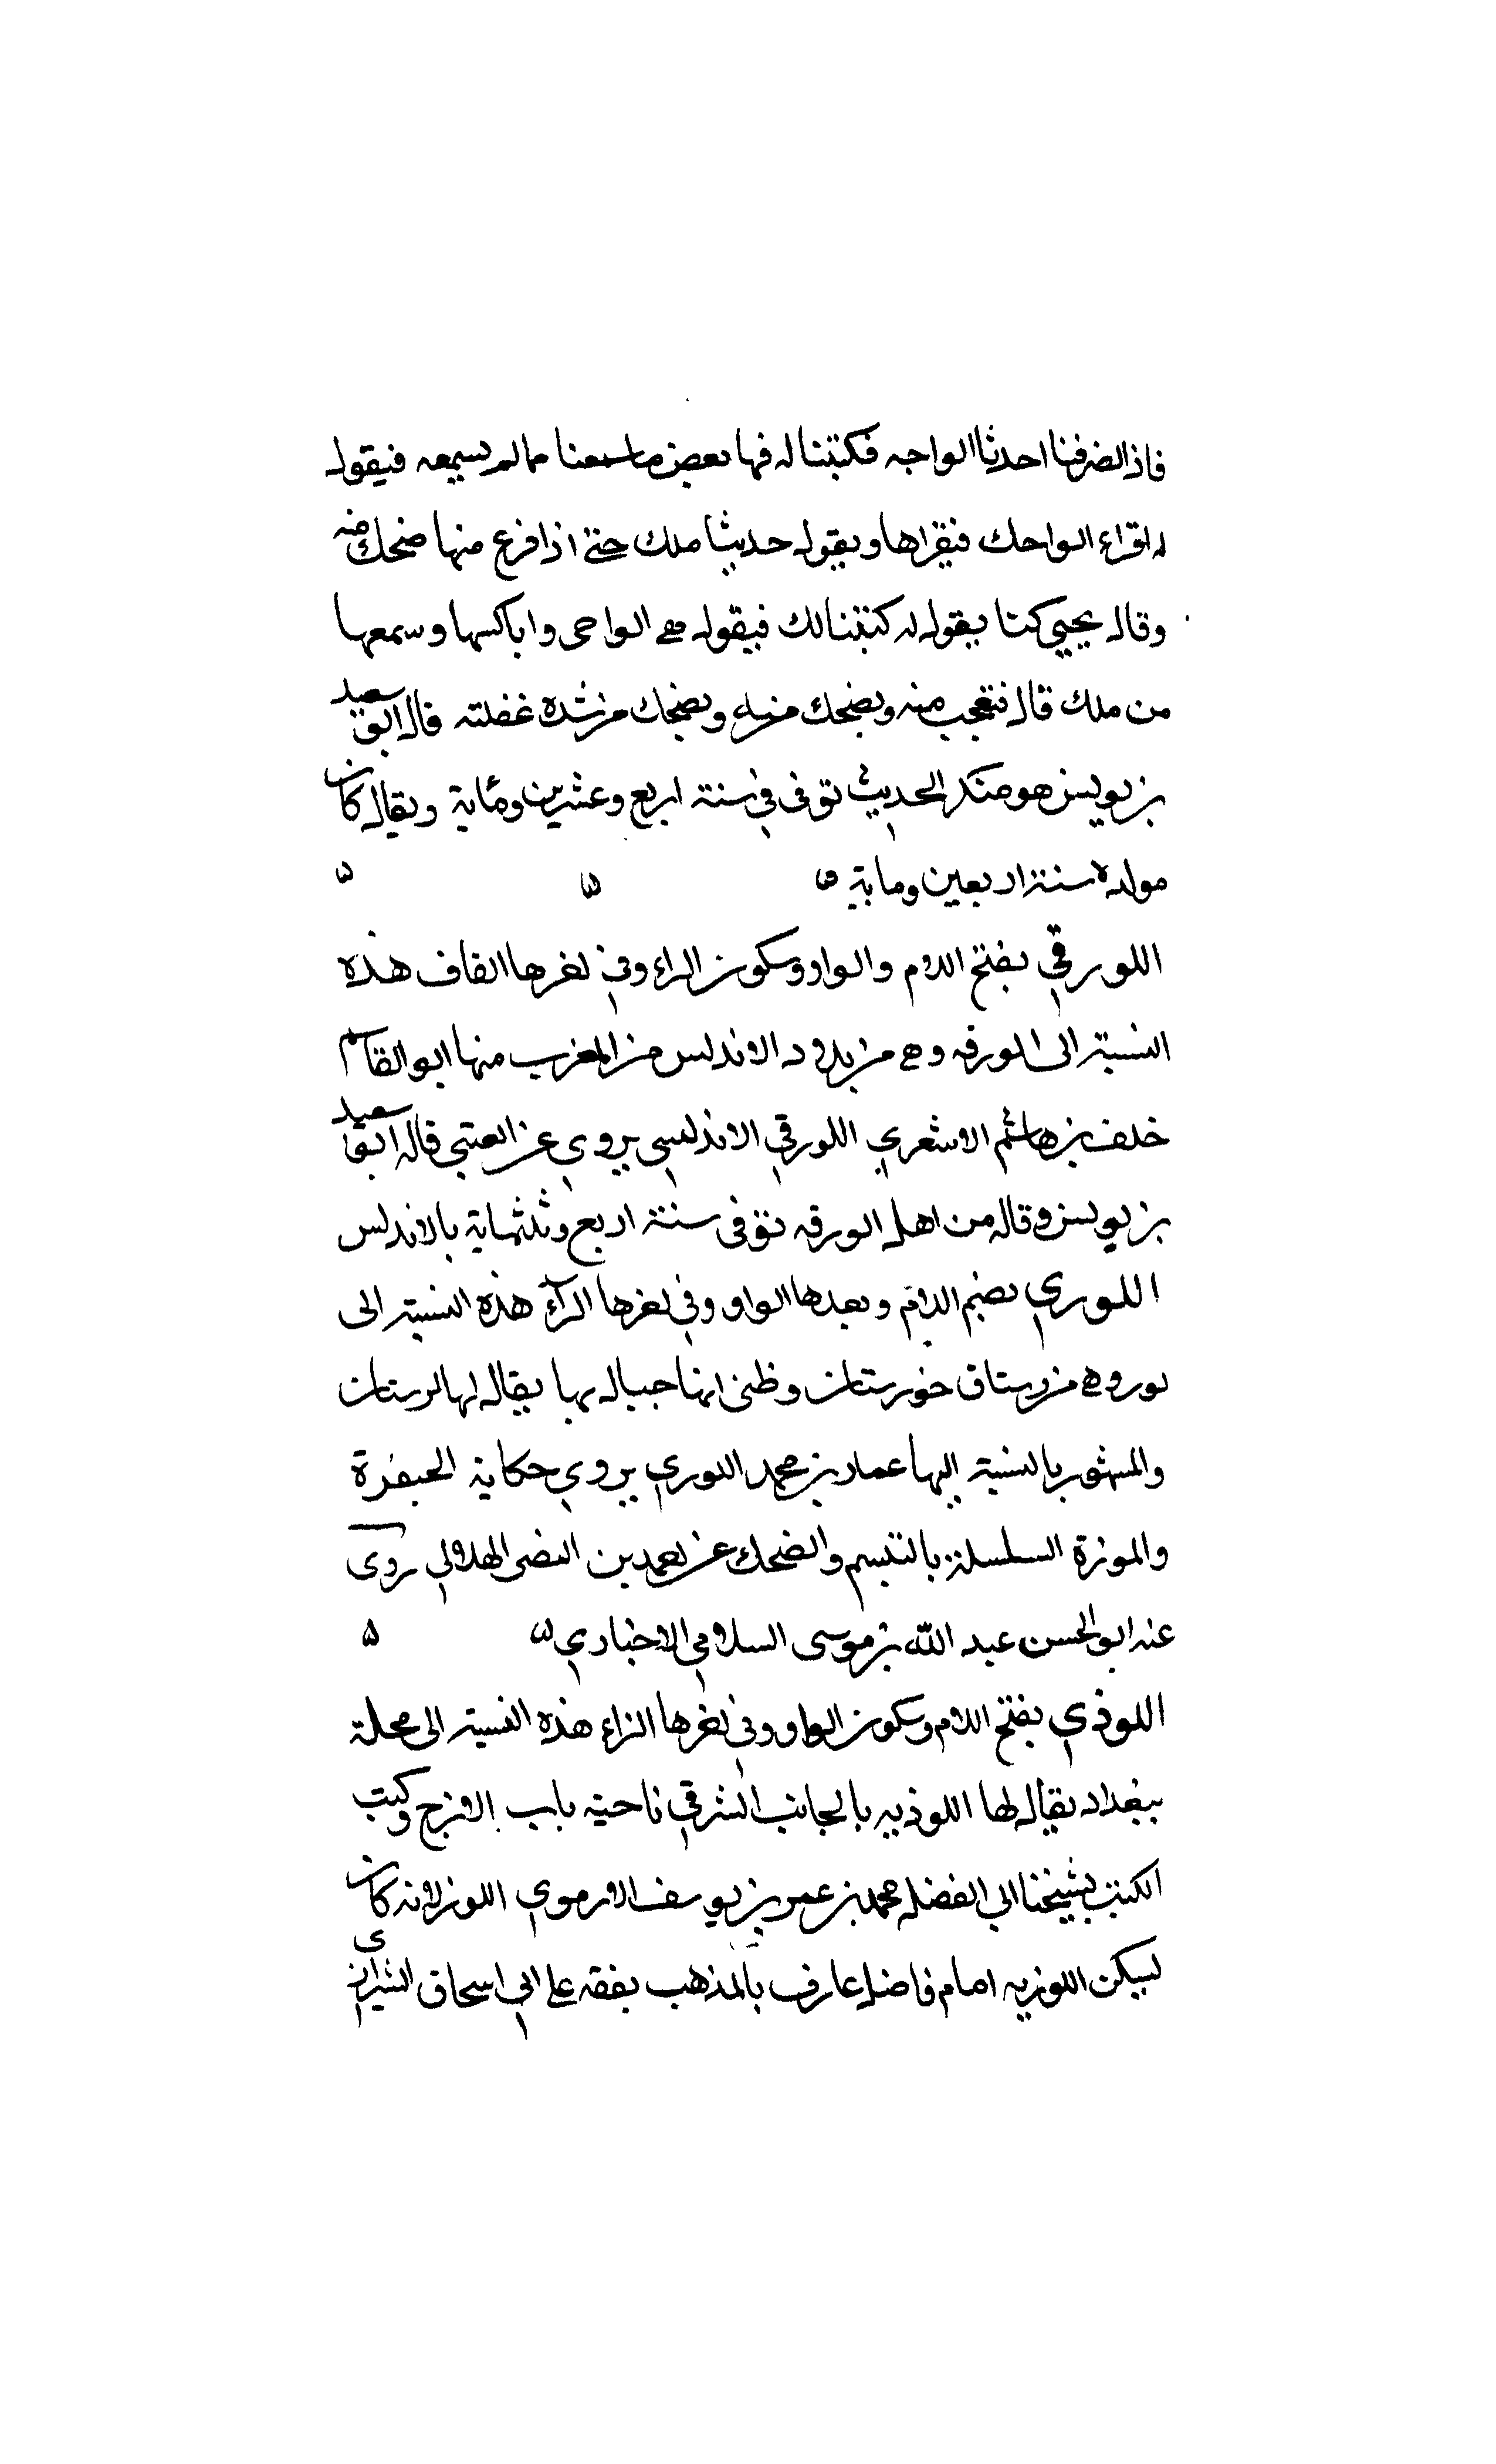 فاذا انصرفنا احدثنا الواحه فكتبنا له فيها بعض ما سمعنا مما لم يسمعه فيقول
له اقراء الواحك فيقراها ويقول حديثا ملك حتى اذا فرغ منها ضحك منه
وقال يحيى كنا يقول له كتبنا لك فيقول هي الواحى وانا كتبتها وسمعتها
من ملك قال فتعجب منه ويضحك منه ويضحك من شدة غفلته قال ابو سعيد
بن يونس هو منكر الحديث توفى في سنة اربع وعشرين ومائة ويقال كان
مولده سنة اربعين ومائة ه ه ه
اللورقي بفتح اللام والواو وسكون الراء وفي اخرها القاف هذه
النسبة الى لورقه وهي من بلاد الاندلس من المغرب منها ابو القاسم
خلف بن هاشم الاشعري اللورقي الاندلسي يروي عن العتبي قاله ابو سعيد
بن يونس وقال من اهل لورقه توفى سنة اربع وثلثماية بالاندلس
اللوري بضم اللام وبعدها الواو وفي اخرها الرآء هذه النسبة الى
لور وهي من رستاق خورستان وظنى انها جبال بها يقال لها لرستان
والمشهور بالنسبة اليها عمار بن محمد اللوري يروي حكاية
السلسلة بالتبسم والضحك عن الهلالي روى
عنه ابو الحسن عبد الله بن موسى السلامي الاخباري ه ه
اللوزي بفتح اللام وسكون الواو وفي اخرها الزاء هذه النسبة الى محلة
ببغداد يقال لها اللوزيه بالجانب الشرقي ناحية باب الازج وكتب
الكتب بشيخنا ابي الفضل محمد بن عمر بن يوسف الارموي اللوز لانه كان
يسكن اللوزيه امام فاضل عارف بالمذهب تفقه على ابي اسحاق الشيرازى